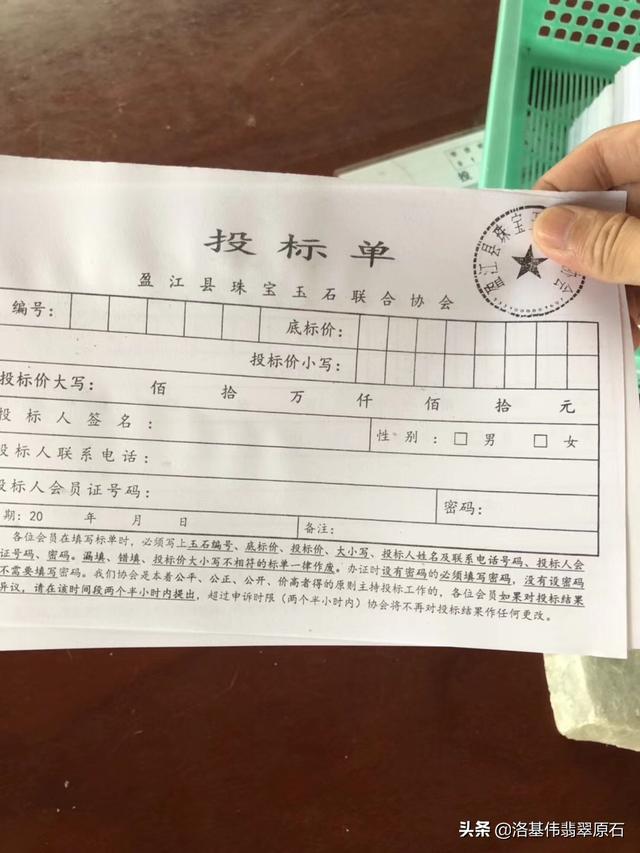 投标单
盈江县珠宝玉石联合协会
编号：
底标价：
投标价小写：
投标价大写： 佰 拾 万 仟 佰 拾 元
投标人签名：
性别：□男 □女
投标人联系电话：
投标人会员证号码：
密码：
期：20 年 月 日
备注：
各位会员在填写标单时，必须写上玉石编号、底标价、投标价、大小写、投标人姓名及联系电话号码、投标人会
证号码、密码。漏填、错填、投标价大小写不相符的标单一律作废。办证时设有密码的必须填写密码，没有设密码
不需要填写密码。我们协会是本着公平、公正、公开、价高者得的原则主持投标工作的，各位会员如果对投标结果
异议，请在该时间段两个半小时内提出，超过申诉时限（两个半小时内）协会将不再对投标结果作任何更改。
盈江县珠宝
会
投
头条 @洛基伟翡翠原石